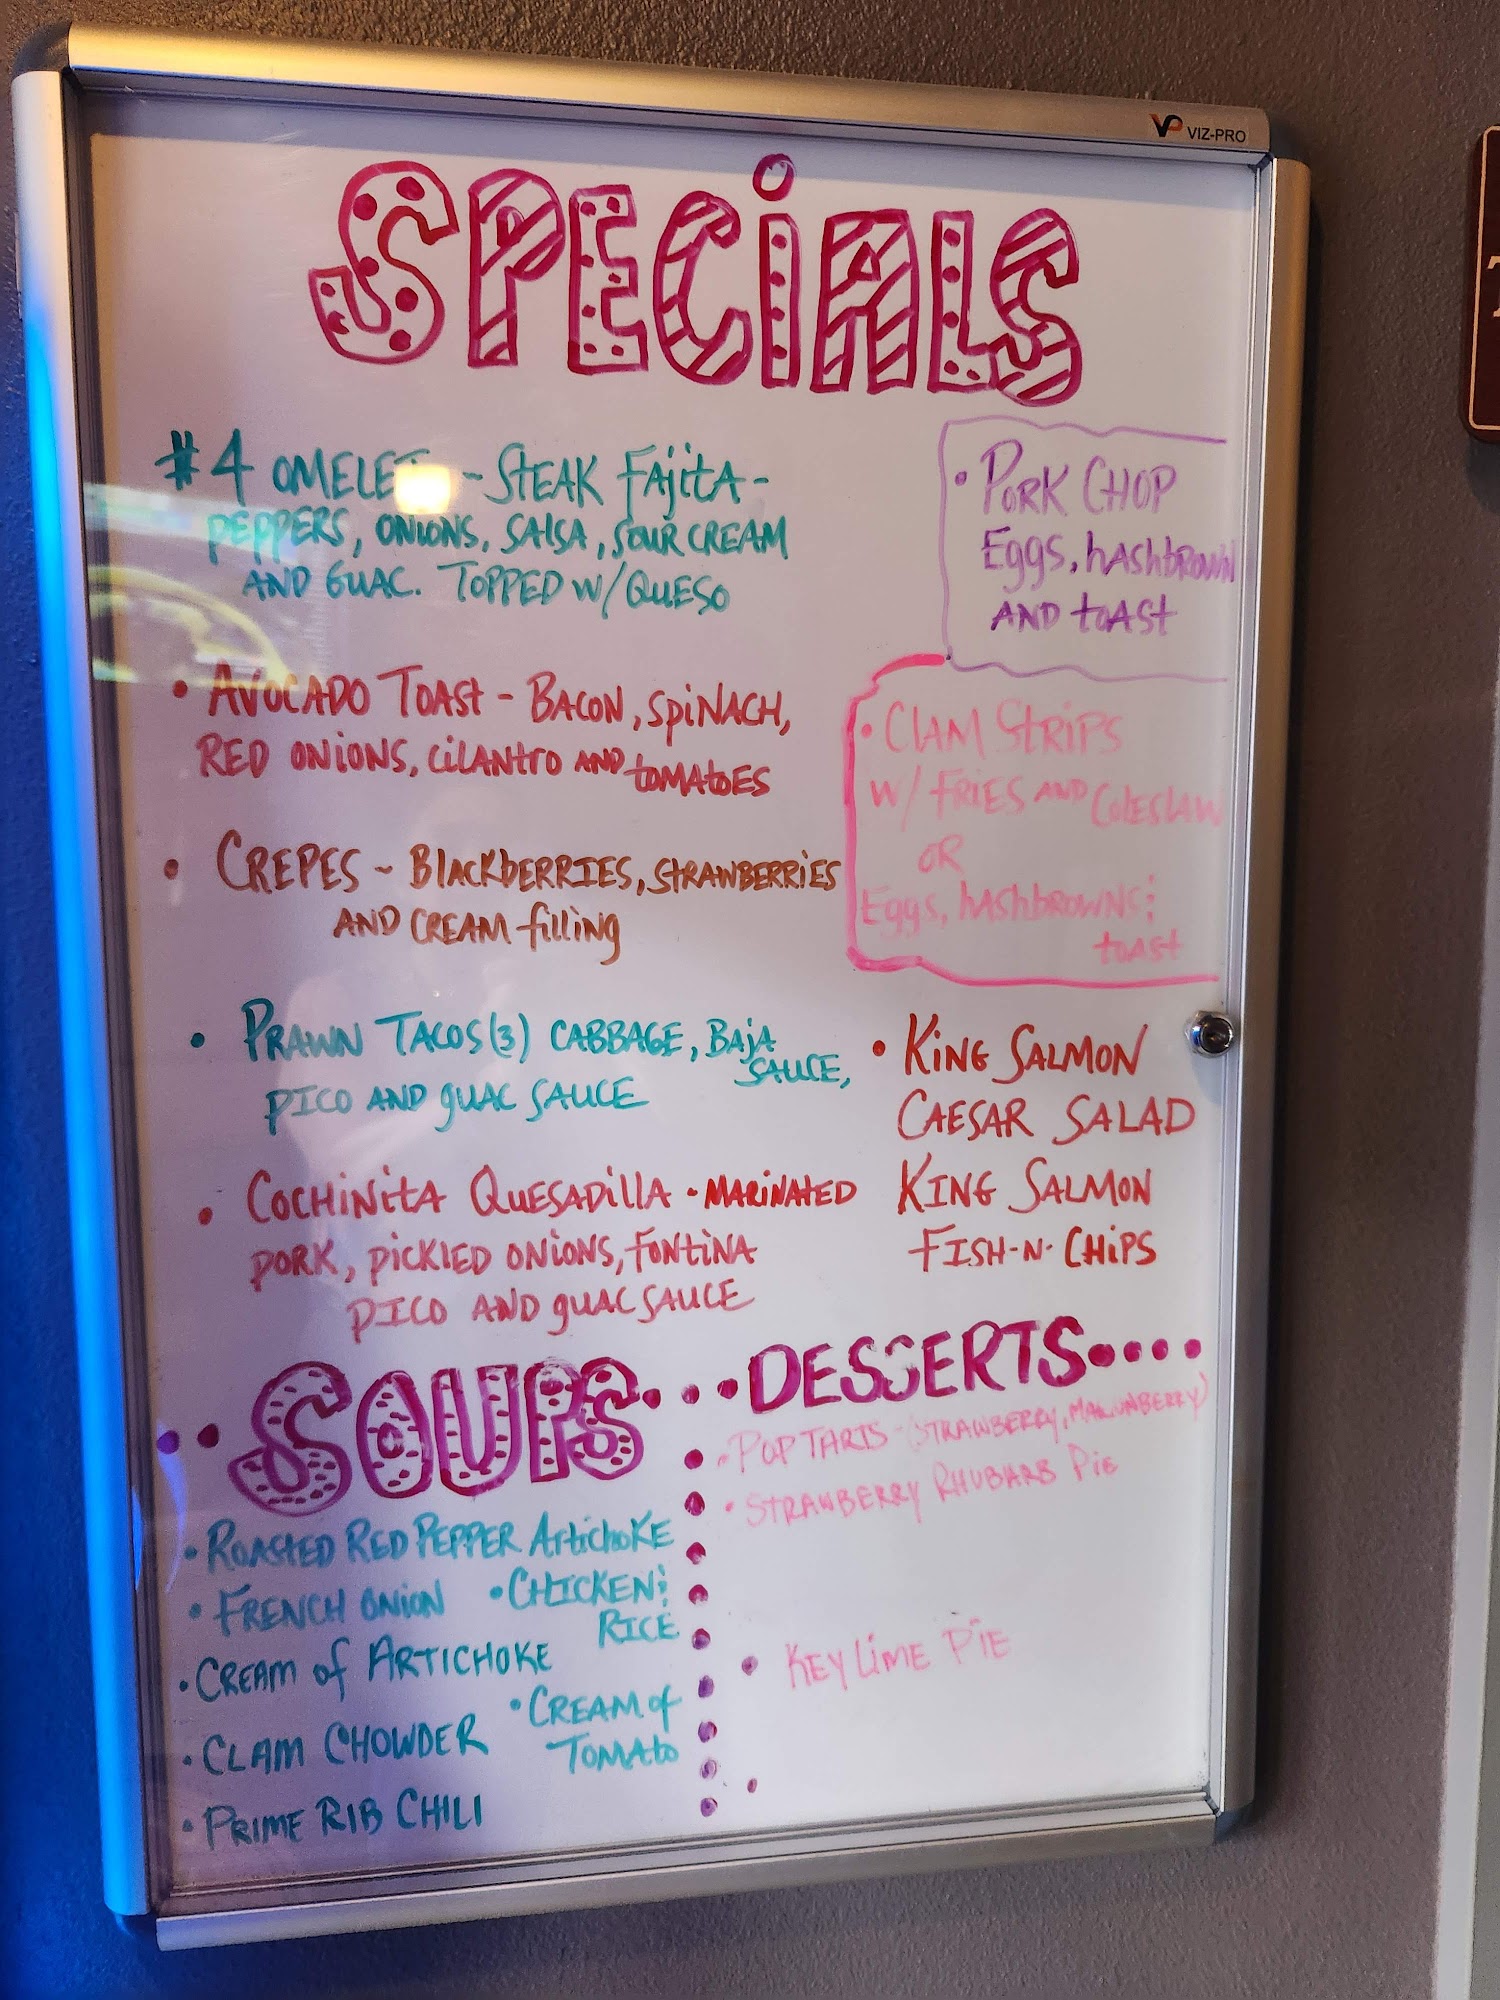 VIZ-PRO
SPECiALS
#4 OMELET - STEAK FAjitA -
PEPPERS, ONIONS, SALSA, SOUR CREAM
AND GUAC. TOPPED W/ QUESO
• AVOCADO TOAST - BACON, SPiNACH,
RED ONIONS, CILANTRO AND TOMATOES
• CREPES ~ BLACKBERRIES, STRAWBERRIES
AND CREAM filling
• PRAWN TACOS (3) CABBAGE, BAjA
SAUCE,
PICO AND GUAC SAUCE
• COCHINITA QUESADILLA • MARINATED
PORK, PICKLED ONIONS, FONTINA
PICO AND GUAC SAUCE
• PORK CHOP
Eggs, hASHBROWN
AND TOAST
• CLAM STRIPS
W/ FRIES AND COLESLAW
OR
Eggs, hASHBROWNS;
TOAST
• KING SALMON
CAESAR SALAD
KING SALMON
FISH-N-CHIPS
SOUPS
• ROASTED RED PEPPER ARTICHOKE
• FRENCH ONION
• CHICKEN;
RICE
• CREAM of ARTICHOKE
• CLAM CHOWDER
• CREAM of
TOMATO
• PRIME RIB CHILI
DESSERTS....
• POP TARTS - (STRAWBERRY, MARIONBERRY)
• STRAWBERRY RHUBARB PiE
• KEY LIME PIE